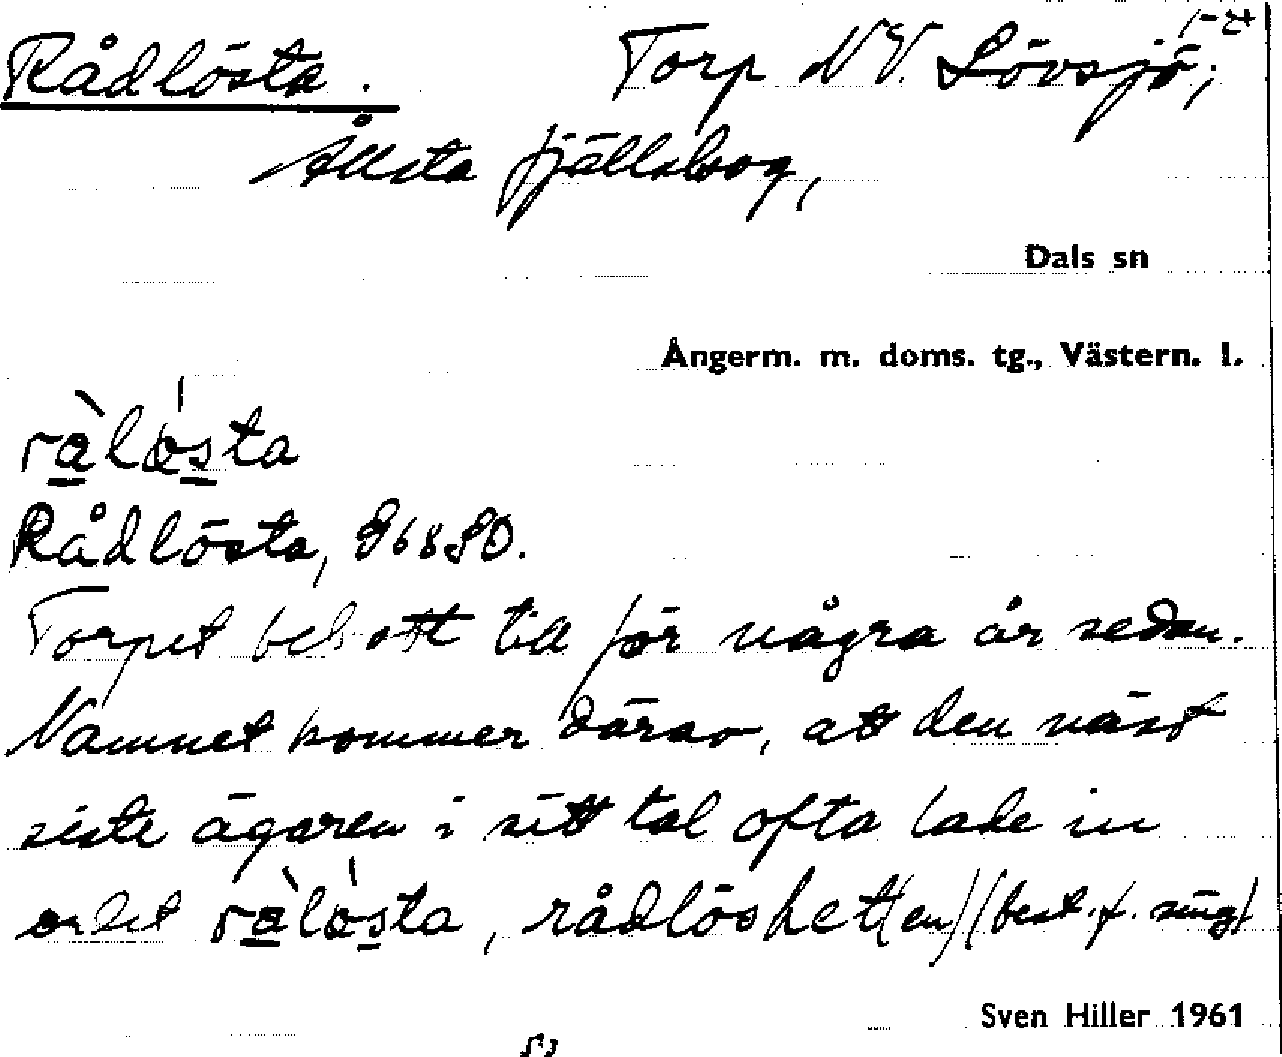 Rådlösta. Torp NV. Lövsjö;
Ållsta fjällskog,
Dals sn
Ångerm. m. doms. tg., Västern. l.
ràlö́sta
Rådlösta, 868 SO.
Torpet bebott till för några år sedan.
Namnet kommer därav, att den näst
siste ägaren i sitt tal ofta lade in
ordet ràlö́sta, rådlöshet(en) (best. f. sing)
Sven Hiller 1961